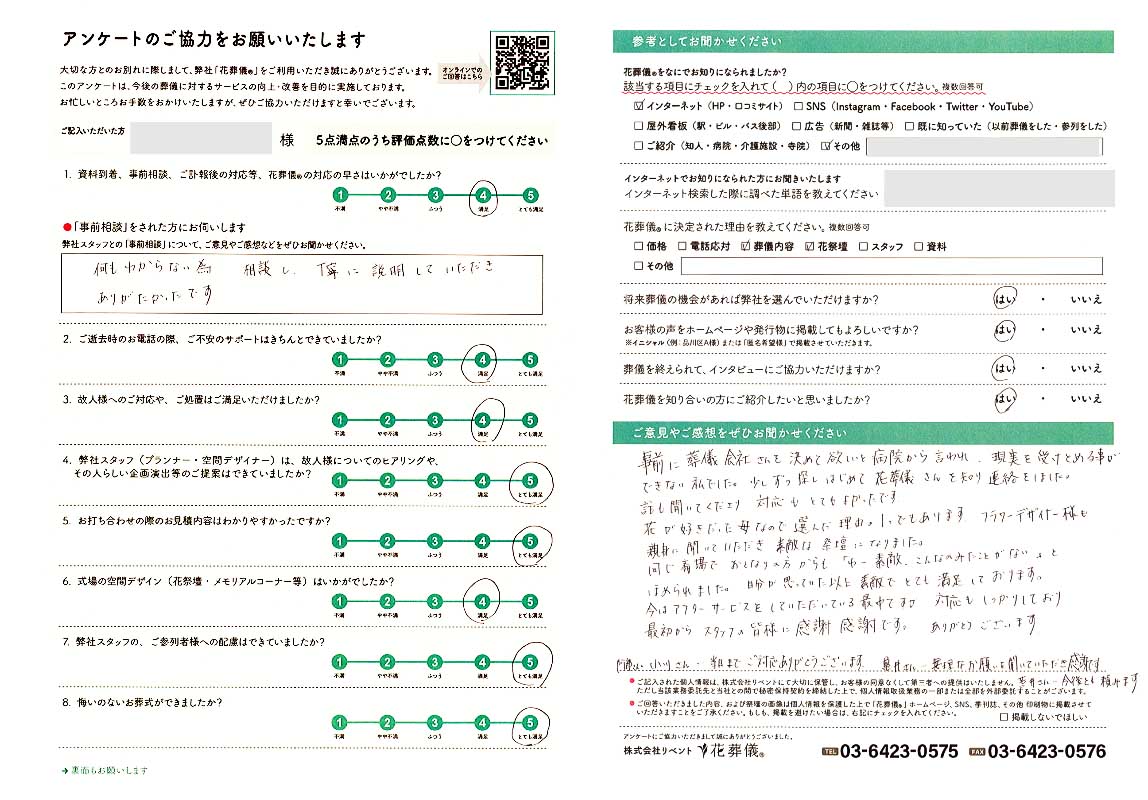 アンケートのご協力をお願いいたします
大切な方とのお別れに際しまして、弊社「花葬儀®」をご利用いただき誠にありがとうございます。
このアンケートは、今後の葬儀に対するサービスの向上・改善を目的に実施しております。
お忙しいところお手数をおかけいたしますが、ぜひご協力いただけますと幸いでございます。
オンラインでの
ご回答はこちら
ご記入いただいた方 様 5点満点のうち評価点数に○をつけてください
1. 資料到着、事前相談、ご訃報後の対応等、花葬儀®の対応の早さはいかがでしたか?
1 2 3 4 5
不満 やや不満 ふつう 満足 とても満足
●「事前相談」をされた方にお伺いします
弊社スタッフとの「事前相談」について、ご意見やご感想などをぜひお聞かせください。
何もわからない為 相談し、丁寧に説明していただき
ありがたかったです
2. ご逝去時のお電話の際、ご不安のサポートはきちんとできていましたか?
1 2 3 4 5
不満 やや不満 ふつう 満足 とても満足
3. 故人様へのご対応や、ご処置はご満足いただけましたか?
1 2 3 4 5
不満 やや不満 ふつう 満足 とても満足
4. 弊社スタッフ(プランナー・空間デザイナー)は、故人様についてのヒアリングや、
その人らしい企画演出等のご提案はできていましたか?
1 2 3 4 5
不満 やや不満 ふつう 満足 とても満足
5. お打ち合わせの際のお見積内容はわかりやすかったですか?
1 2 3 4 5
不満 やや不満 ふつう 満足 とても満足
6. 式場の空間デザイン(花祭壇・メモリアルコーナー等)はいかがでしたか?
1 2 3 4 5
不満 やや不満 ふつう 満足 とても満足
7. 弊社スタッフの、ご参列者様への配慮はできていましたか?
1 2 3 4 5
不満 やや不満 ふつう 満足 とても満足
8. 悔いのないお葬式ができましたか?
1 2 3 4 5
不満 やや不満 ふつう 満足 とても満足
→ 裏面もお願いします
参考としてお聞かせください
花葬儀®をなにでお知りになられましたか?
該当する項目にチェックを入れて( )内の項目に○をつけてください。複数回答可
☑インターネット(HP・口コミサイト) □SNS(Instagram・Facebook・Twitter・YouTube)
□屋外看板(駅・ビル・バス後部) □広告(新聞・雑誌等) □既に知っていた(以前葬儀をした・参列をした)
□ご紹介(知人・病院・介護施設・寺院) ☑その他
インターネットでお知りになられた方にお聞きいたします
インターネット検索した際に調べた単語を教えてください
花葬儀®に決定された理由を教えてください。複数回答可
□価格 □電話応対 ☑葬儀内容 ☑花祭壇 □スタッフ □資料
□その他
将来葬儀の機会があれば弊社を選んでいただけますか? はい ・ いいえ
お客様の声をホームページや発行物に掲載してもよろしいですか? はい ・ いいえ
※イニシャル(例:品川区A様)または「匿名希望様」で掲載させていただきます。
葬儀を終えられて、インタビューにご協力いただけますか? はい ・ いいえ
花葬儀を知り合いの方にご紹介したいと思いましたか? はい ・ いいえ
ご意見やご感想をぜひお聞かせください
事前に葬儀会社さんを決めて欲しいと病院から言われ、現実を受けとめる事が
できない私でした。少しずつ探しはじめて花葬儀さんを知り連絡をしました。
話も聞いてくださり 対応もとてもよかったです
花が好きだった母なので選んだ理由の1つでもあります フラワーデザイナー様も
親身に聞いていただき 素敵な祭壇になりました。
同じ斎場で おとなりの方からも「わー素敵、こんなのみたことがない」と
ほめられました。自分が思っていた以上素敵でとても満足しております。
今はアフターサービスをしていただいている最中ですが 対応もしっかりしており
最初から スタッフの皆様に感謝感謝です。 ありがとうございます
小川さん ご対応ありがとうございます お願いを聞いていただき感謝です
今後とも頼みます
●ご記入された個人情報は、株式会社リベントにて大切に保管し、お客様の同意なくして第三者への提供はいたしません。
ただし当該業務委託先と当社との間で秘密保持契約を締結した上で、個人情報取扱業務の一部または全部を外部委託することがございます。
●ご回答いただきました内容、および祭壇の画像は個人情報を保護した上で「花葬儀®」ホームページ、SNS、季刊誌、その他 印刷物に掲載させて
いただきますことをご了承ください。もしも、掲載を避けたい場合は、右記にチェックを入れてください。 □掲載しないでほしい
アンケートにご協力いただきまして誠にありがとうございました。
株式会社リベント 花葬儀® TEL 03-6423-0575 FAX 03-6423-0576